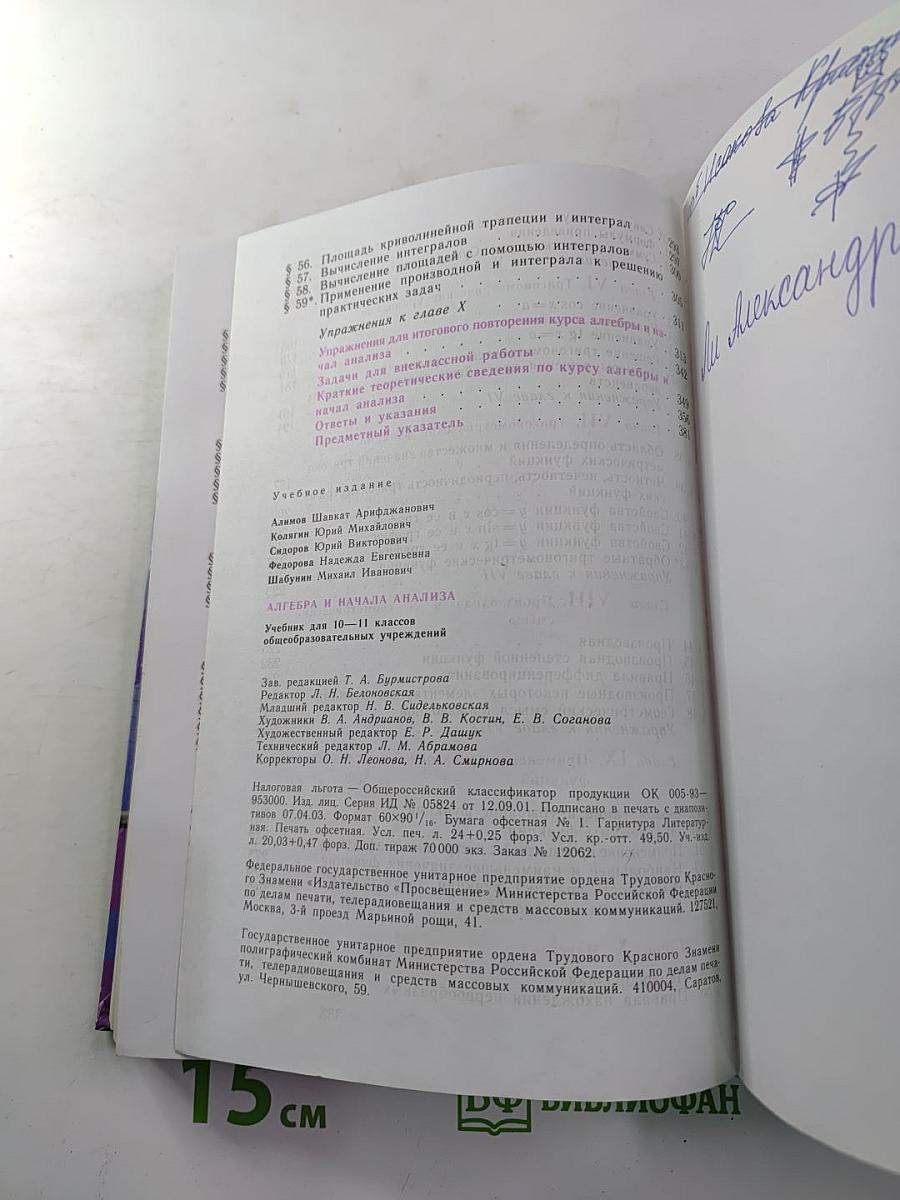 § 56. Площадь криволинейной трапеции и интеграл
§ 57. Вычисление интегралов . . . 297
§ 58. Вычисление площадей с помощью интегралов 300
§ 59*. Применение производной и интеграла к решению
практических задач . . . 305
Упражнения к главе X . . . 311
Упражнения для итогового повторения курса алгебры и на-
чал анализа . . . 313
Задачи для внеклассной работы . . . 342
Краткие теоретические сведения по курсу алгебры и
начал анализа . . . 349
Ответы и указания . . . 356
Предметный указатель . . . 381
Учебное издание
Алимов Шавкат Арифджанович
Колягин Юрий Михайлович
Сидоров Юрий Викторович
Федорова Надежда Евгеньевна
Шабунин Михаил Иванович
АЛГЕБРА И НАЧАЛА АНАЛИЗА
Учебник для 10—11 классов
общеобразовательных учреждений
Зав. редакцией Т. А. Бурмистрова
Редактор Л. Н. Белоновская
Младший редактор Н. В. Сидельковская
Художники В. А. Андрианов, В. В. Костин, Е. В. Соганова
Художественный редактор Е. Р. Дащук
Технический редактор Л. М. Абрамова
Корректоры О. Н. Леонова, Н. А. Смирнова
Налоговая льгота — Общероссийский классификатор продукции ОК 005-93—
953000. Изд. лиц. Серия ИД № 05824 от 12.09.01. Подписано в печать с диапози-
тивов 07.04.03. Формат 60×90 1/16. Бумага офсетная № 1. Гарнитура Литератур-
ная. Печать офсетная. Усл. печ. л. 24+0,25 форз. Усл. кр.-отт. 49,50. Уч.-изд.
л. 20,03+0,47 форз. Доп. тираж 70 000 экз. Заказ № 12062.
Федеральное государственное унитарное предприятие ордена Трудового Красно-
го Знамени «Издательство «Просвещение» Министерства Российской Федерации
по делам печати, телерадиовещания и средств массовых коммуникаций. 127521,
Москва, 3-й проезд Марьиной рощи, 41.
Государственное унитарное предприятие ордена Трудового Красного Знамени
полиграфический комбинат Министерства Российской Федерации по делам печа-
ти, телерадиовещания и средств массовых коммуникаций. 410004, Саратов,
ул. Чернышевского, 59.
Александр
15 см
БФ БИБЛИОФАН